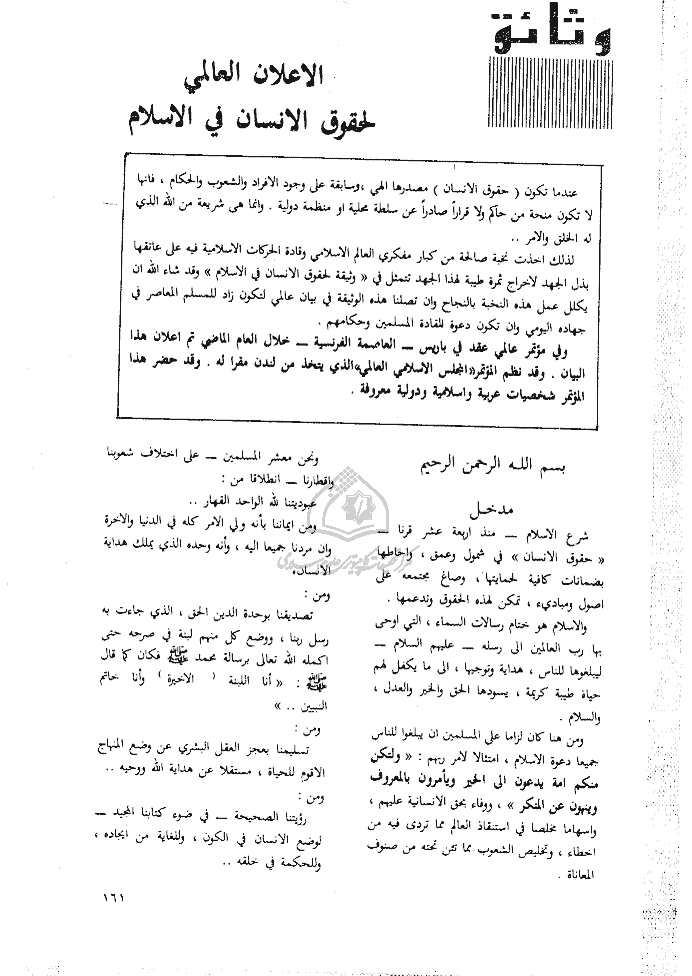 وثائق
الاعلان العالمي
لحقوق الانسان في الاسلام
عندما تكون ( حقوق الانسان ) مصدرها الهي ،وسابقة على وجود الافراد والشعوب والحكام ، فانها
لا تكون منحة من حاكم ولا قراراً صادراً عن سلطة محلية او منظمة دولية . وانما هى شريعة من الله الذي
له الخلق والامر ..
لذلك اخذت نخبة صالحة من كبار مفكري العالم الاسلامي وقادة الحركات الاسلامية فيه على عاتقها
بذل الجهد لاخراج ثمرة طيبة لهذا الجهد تتمثل في « وثيقة لحقوق الانسان في الاسلام » وقد شاء الله ان
يكلل عمل هذه النخبة بالنجاح وان تصلنا هذه الوثيقة في بيان عالمي لتكون زاد للمسلم المعاصر في
جهاده اليومي وان تكون دعوة للقادة المسلمين وحكامهم .
وفي مؤتمر عالمي عقد في باريس ــ العاصمة الفرنسية ــ خلال العام الماضي تم اعلان هذا
البيان . وقد نظم المؤتمر«المجلس الاسلامي العالمي»الذي يتخذ من لندن مقرا له . وقد حضر هذا
المؤتمر شخصيات عربية واسلامية ودولية معروفة .
بسم اللـه الرحمن الرحيم
مدخـل
شرع الاسلام ــ منذ اربعة عشر قرنا ــ
« حقوق الانسان » في شمول وعمق ، واحاطها
بضمانات كافية لحمايتها ، وصاغ مجتمعه على
اصول ومباديء ، تمكن لهذه الحقوق وتدعمها .
والاسلام هو ختام رسالات السماء ، التي اوحى
بها رب العالمين الى رسله ــ عليهم السلام ــ
ليبلغوها للناس ، هداية وتوجيها ، الى ما يكفل لهم
حياة طيبة كريمة ، يسودها الحق والخير والعدل ،
والسلام .
ومن هنا كان لزاما على المسلمين ان يبلغوا للناس
جميعا دعوة الاسلام ، امتثالا لامر ربهم : « ولتكن
منكم امة يدعون الى الخير ويأمرون بالمعروف
وينهون عن المنكر » ، ووفاء بحق الانسانية عليهم ،
واسهاما مخلصا في استنقاذ العالم مما تردى فيه من
اخطاء ، وتخليص الشعوب مما تئن تحته من صنوف
المعاناة .
ونحن معشر المسلمين ــ على اختلاف شعوبنا
واقطارنا ــ انطلاقا من :
عبوديتنا لله الواحد القهار ..
ومن ايماننا بأنه ولي الامر كله في الدنيا والاخرة
وان مردنا جميعا اليه ، وأنه وحده الذي يملك هداية
الانسان
ومن :
تصديقنا بوحدة الدين الحق ، الذي جاءت به
رسل ربنا ، ووضع كل منهم لبنة في صرحه حتى
اكمله الله تعالى برسالة محمد ﷺ فكان كما قال
ﷺ : « أنا اللبنة ( الاخيرة ) وأنا خاتم
النبيين .. »
ومن :
تسليمنا بعجز العقل البشري عن وضع المنهاج
الاقوم للحياة ، مستقلا عن هداية الله ووحيه ..
ومن :
رؤيتنا الصحيحة ــ في ضوء كتابنا المجيد ــ
لوضع الانسان في الكون ، وللغاية من ايجاده ،
وللحكمة في خلقه ..
١٦١